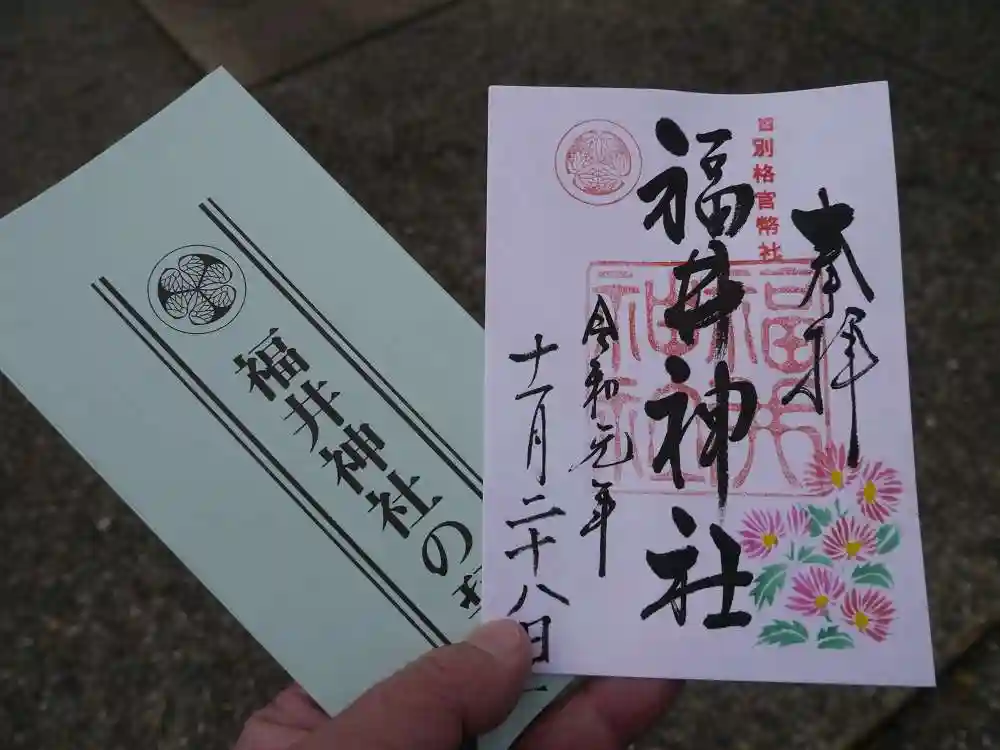 奉拝
旧別格官幣社
福井神社
福井神社
令和元年
十一月二十八日
福井神社の